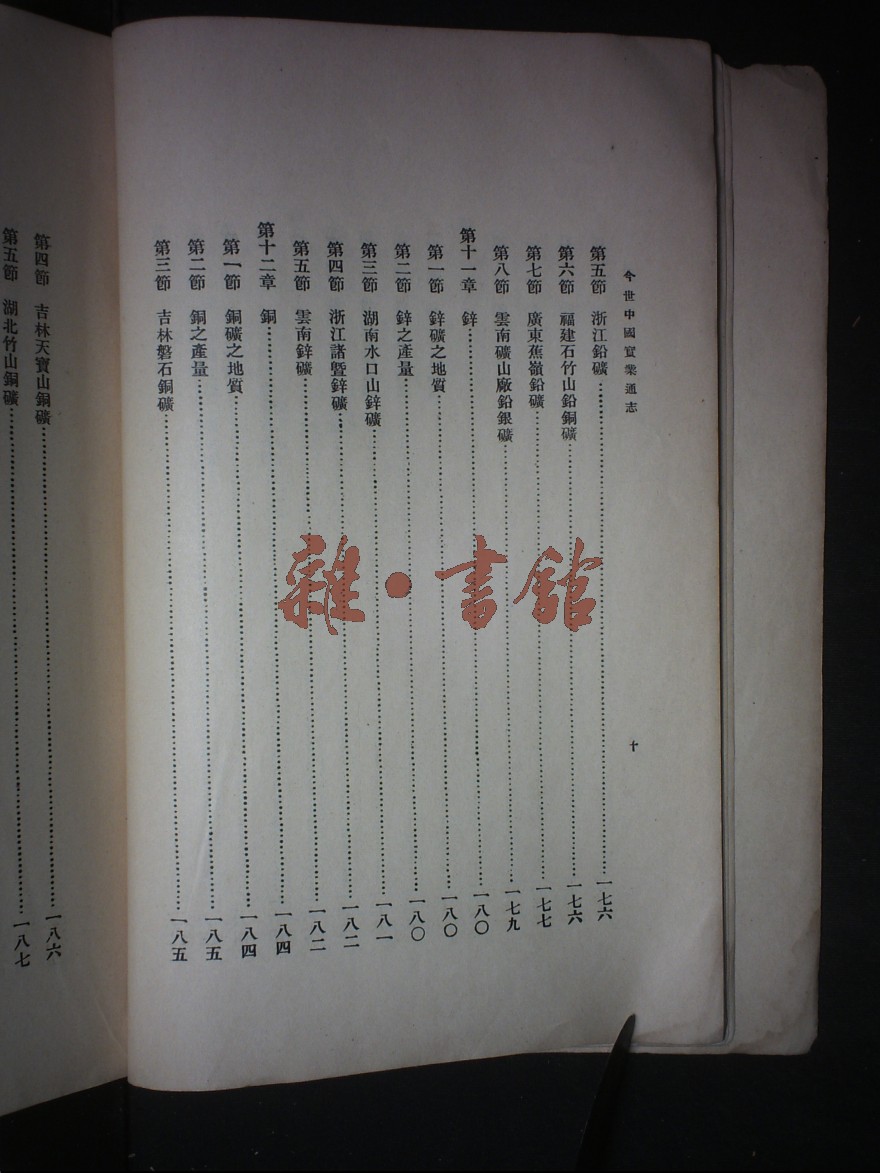 今世中國實業通志
十
第五節 浙江鉛礦……一七六
第六節 福建石竹山鉛銅礦……一七六
第七節 廣東蕉嶺鉛礦……一七七
第八節 雲南礦山廠鉛銀礦……一七九
第十一章 鋅……一八〇
第一節 鋅礦之地質……一八〇
第二節 鋅之產量……一八〇
第三節 湖南水口山鋅礦……一八一
第四節 浙江諸暨鋅礦……一八二
第五節 雲南鋅礦……一八二
第十二章 銅……一八四
第一節 銅礦之地質……一八四
第二節 銅之產量……一八五
第三節 吉林磐石銅礦……一八五
第四節 吉林天寶山銅礦……一八六
第五節 湖北竹山銅礦……一八七
雜·書館